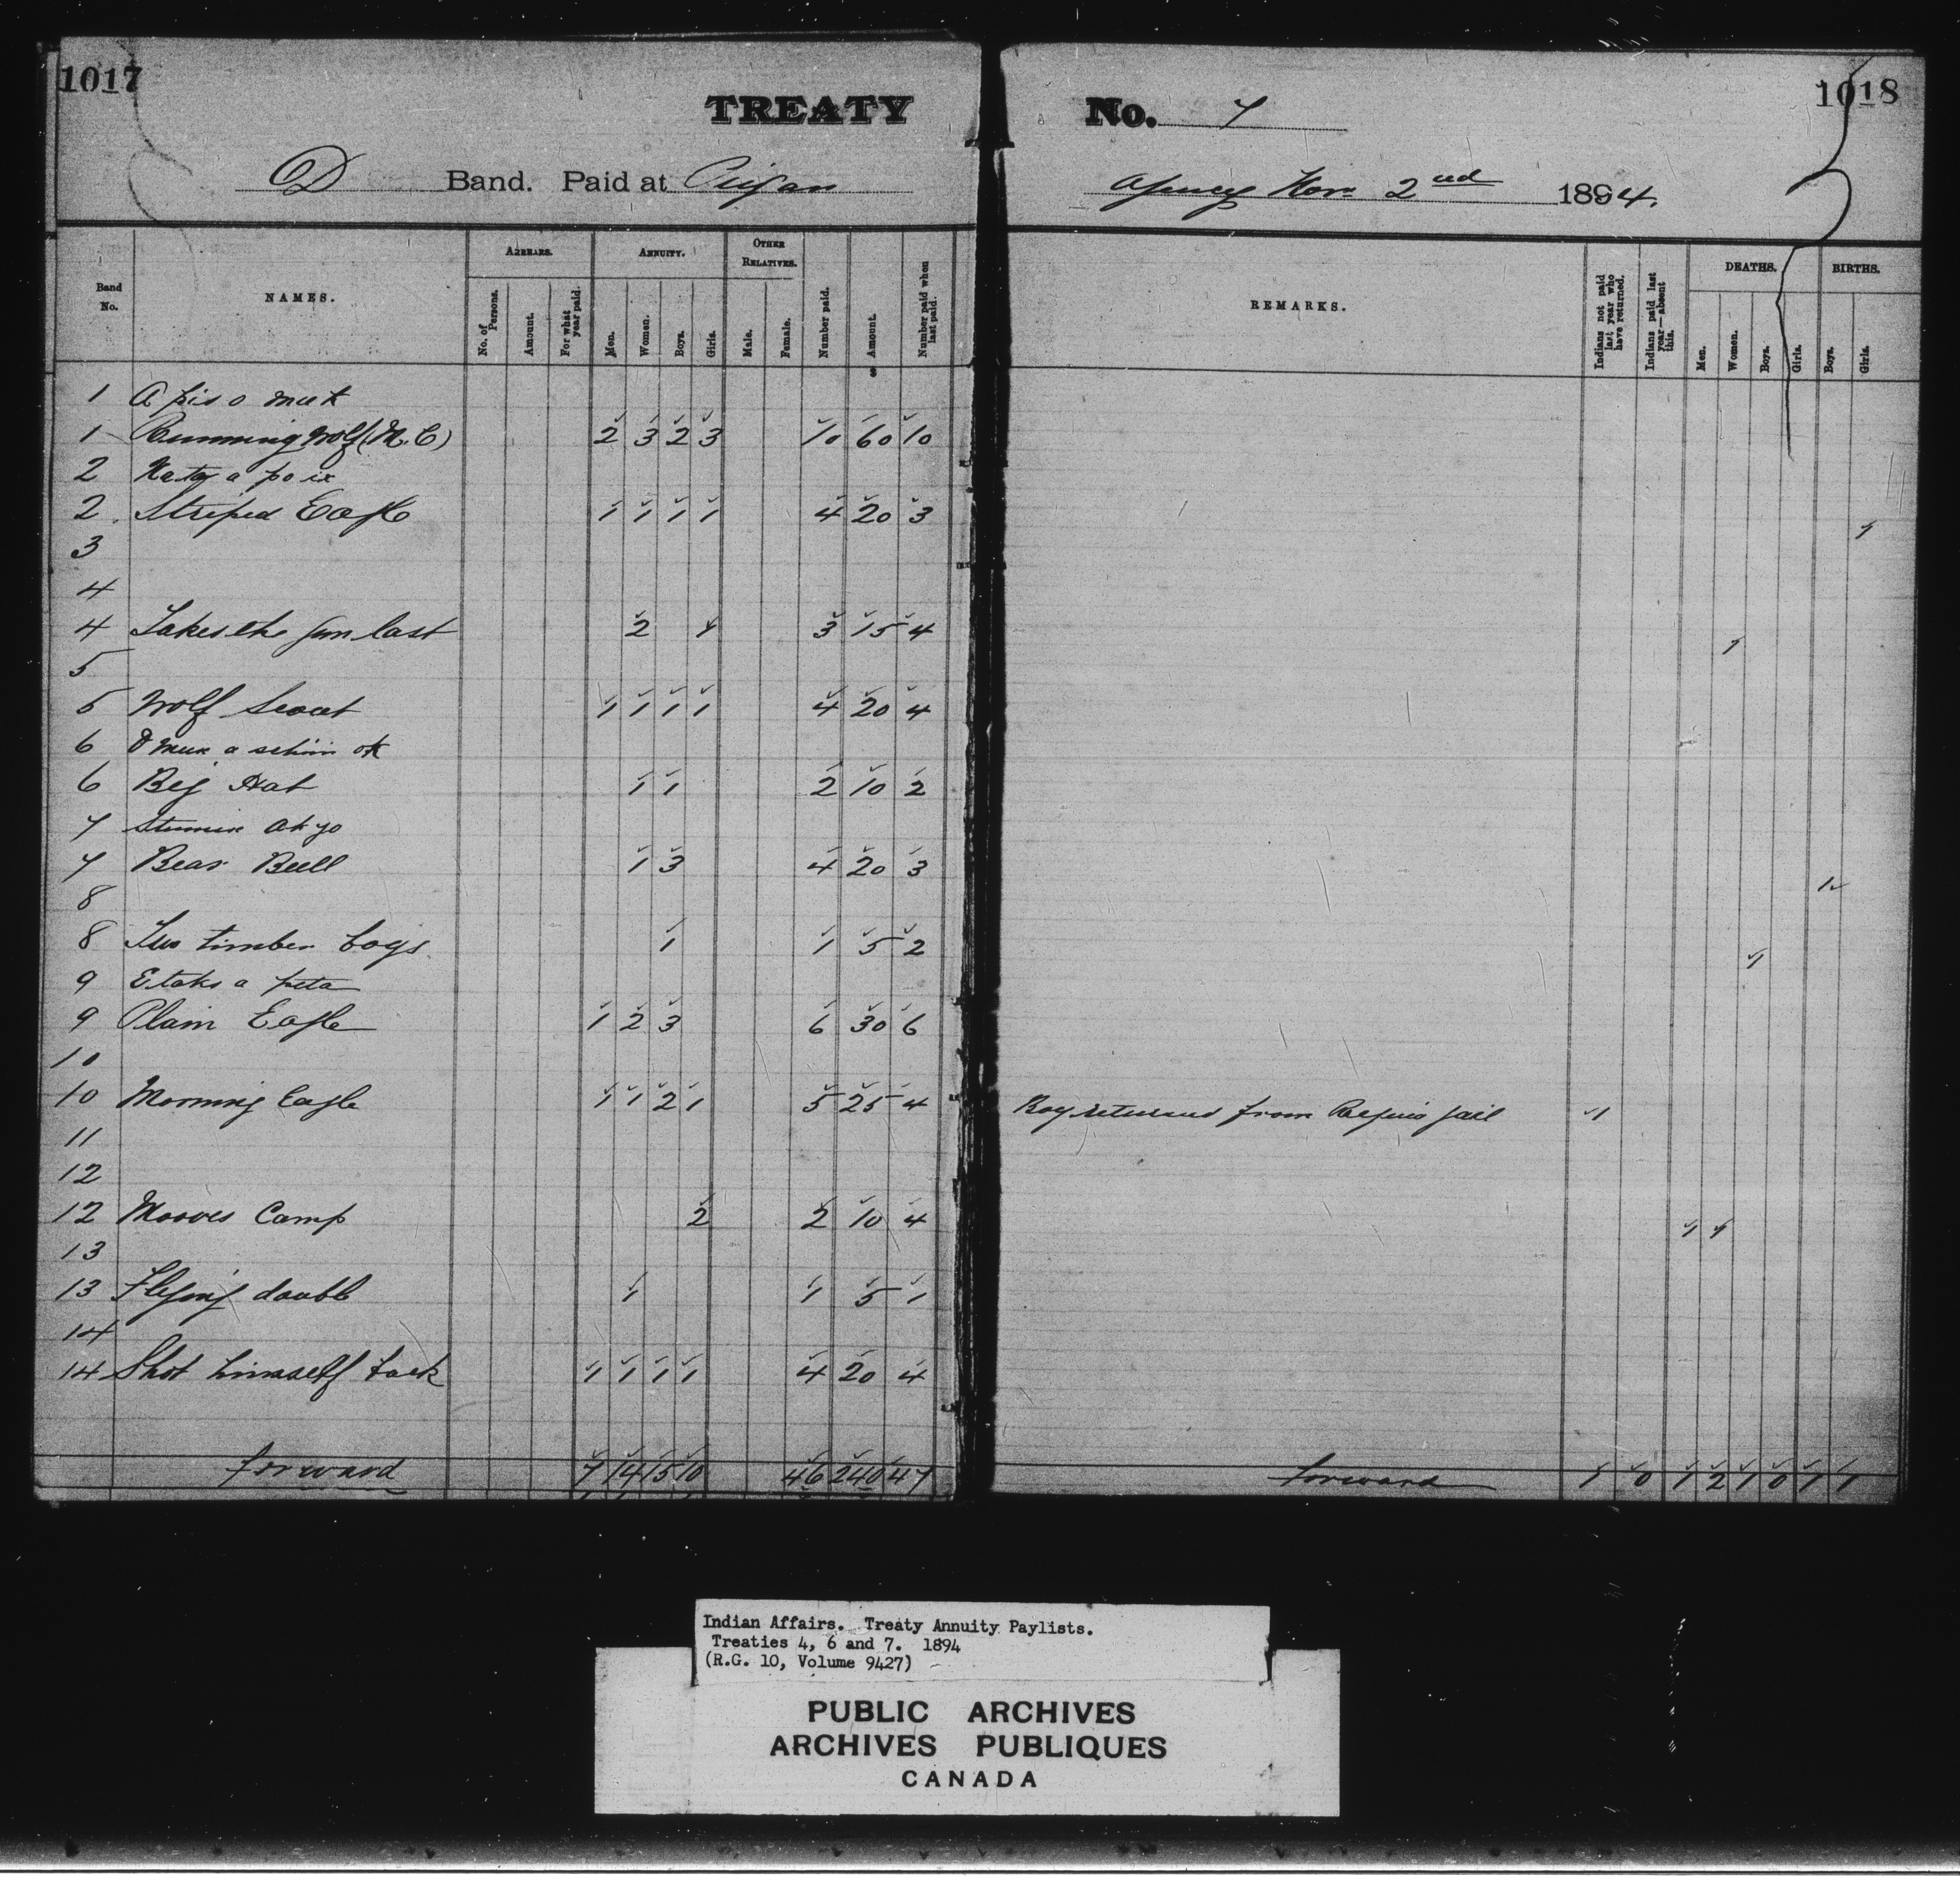 1017
1018
TREATY No. 7
D Band. Paid at Peigan Agency Nov 2nd 1894.
Band No. NAMES. ARREARS. ANNUITY. OTHER RELATIVES. Number paid. Amount. Number paid when last paid. REMARKS. Indians not paid last year who have returned. Indians paid last year—absent this. DEATHS. BIRTHS.
No. of Persons. Amount. For what year paid. Men. Women. Boys. Girls. Male. Female. Men. Women. Boys. Girls. Boys. Girls.
$
1 A pis o muk
1 Running Wolf (M.C) 2 3 2 3 10 60 10
2
2 Striped Eagle 1 1 1 1 4 20 3 1
3
4
4 Takes the gun last 2 1 3 15 4 1
5
5 Wolf Scout 1 1 1 1 4 20 4
6
6 Big Hat 1 1 2 10 2
7
7 Bear Bull 1 3 4 20 3 1
8
8 timber logs 1 1 5 2 1
9 E taks a peta
9 Plain Eagle 1 2 3 6 30 6
10
10 Morning Eagle 1 1 2 1 5 25 4 Boy returned from Regina jail 1
11
12
12 Mooves Camp 2 2 10 4 1 1
13
13 Flying double 1 1 5 1
14
14 Shot himself back 1 1 1 1 4 20 4
forward 7 14 15 10 46 240 47 forward 1 0 1 2 1 0 1 1
Indian Affairs. Treaty Annuity Paylists.
Treaties 4, 6 and 7. 1894
(R.G. 10, Volume 9427)
PUBLIC ARCHIVES
ARCHIVES PUBLIQUES
CANADA